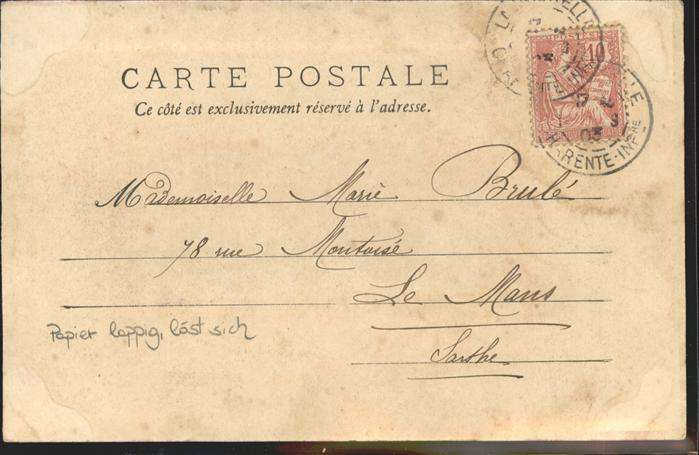 CARTE POSTALE
Ce côté est exclusivement réservé à l'adresse.
10
CHARENTE-INFRE
03
Mademoiselle Marie Brulé
78 rue Montoisé
Le Mans
Sarthe
Papier lappig, löst sich